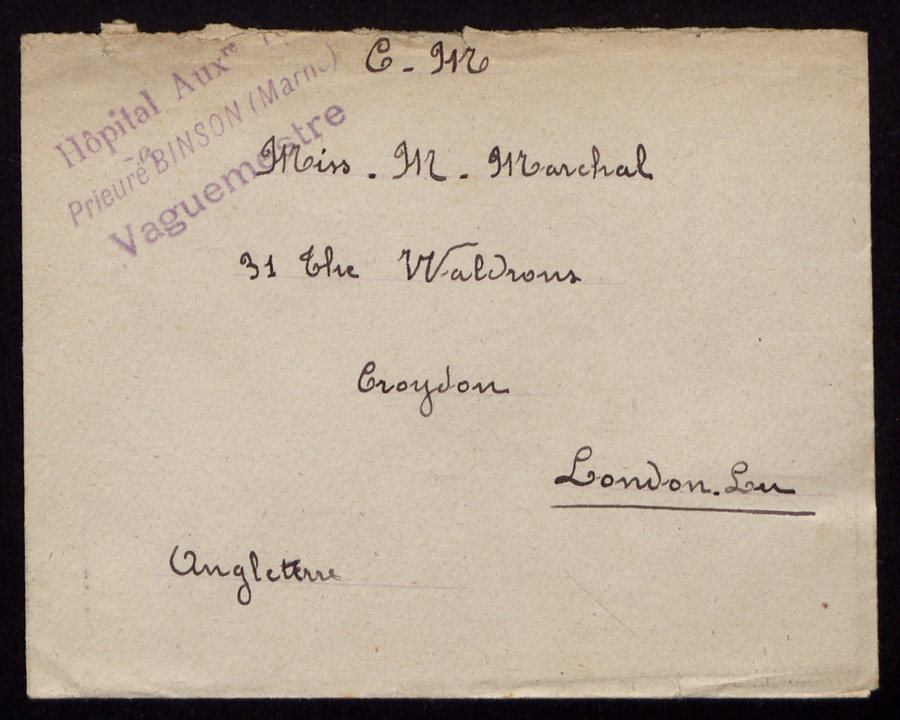 C - M
Hôpital Auxre
Prieuré BINSON (Marne)
Vaguemestre
Miss. M. Marchal
31 The Waldrons
Croydon
London. Lu
Angleterre